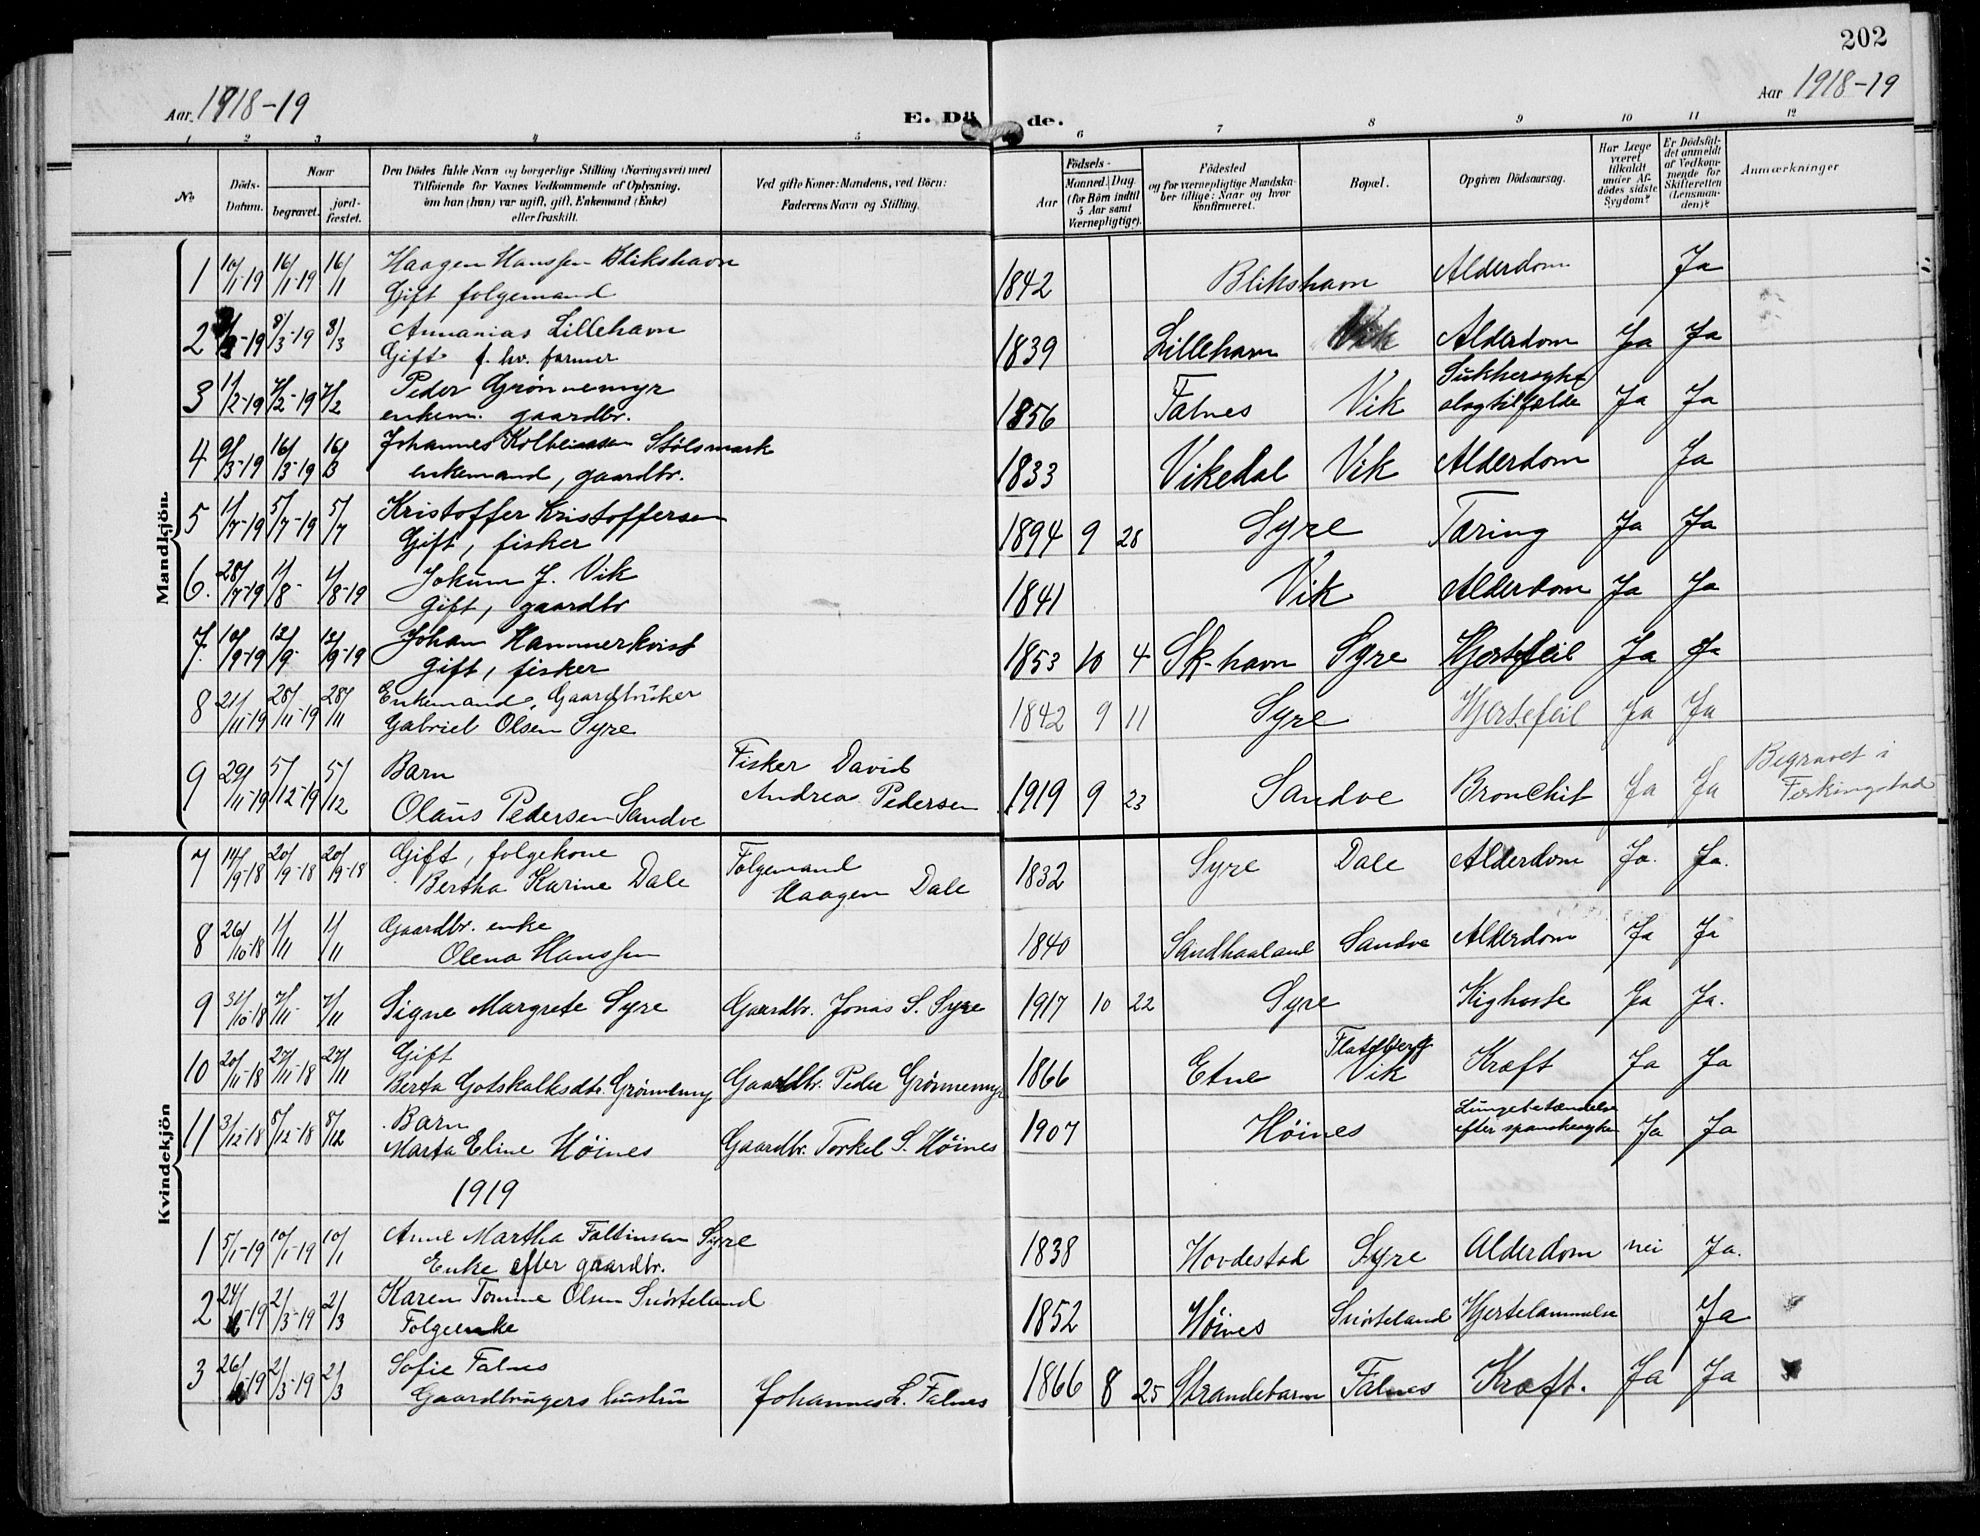 202
Aar 1918-19
E. Dö de.
Aar 1918-19
1 2 3 4 5 6 7 8 9 10 11 12
No.
Döds-Datum.
Naar
begravet.
jord-fæstet.
Den Dödes fulde Navn og borgerlige Stilling (Næringsvei) med
Tilföiende for Voxnes Vedkommende af Oplysning,
om han (hun) var ugift, gift, Enkemand (Enke)
eller fraskilt.
Ved gifte Koner: Mandens, ved Börn:
Faderens Navn og Stilling.
Födsels-
Aar
Maaned. Dag
(for Börn indtil
5 Aar samt
Værnepligtige).
Födested
og for værnepligtige Mandska-
ber tillige: Naar og hvor
konfirmeret.
Bopæl.
Opgiven Dödsaarsag.
Har Læge
været
tilkaldt
under Af-
dödes sidste
Sygdom?
Er Dödsfal-
det anmeldt
af Vedkom-
mende for
Skifteretten
(Lensman-
den)?
Anmærkninger
Mandkjön.
1 10/1-19 16/1-19 16/1 Haagen Hanssen Blikshavn 1842 Blikshavn Alderdom Ja
Gift folgemand
2 -19 8/3-19 8/3 Annanias Lillehavn 1839 Lillehavn Vik Alderdom Ja Ja
Gift f. hv. farmer
3 1/2-19 7/2-19 7/2 Peder Grønnemyr 1856 Falnes Vik Sukkersyke Ja Ja
enkem. gaardbr. slagtilfælde
4 9/3-19 16/3-19 16/3 Johannes Kolbeinssen Stölsmark 1833 Vikedal Vik Alderdom Ja
enkemand, gaardbr.
5 1/7-19 5/7-19 5/7 Kristoffer Kristoffersen 1894 9 28 Syre Tæring Ja Ja
Gift, fisker
6. 28/7-19 1/8- 1/8-19 Jokum J. Vik 1841 Vik Alderdom Ja Ja
gift, gaardbr
7. 10/9-19 12/9- 12/9-19 Johan Hammerkvist 1853 10 4 Sk-havn Syre Hjertefeil Ja Ja
gift, fisker
8 21/11-19 28/11-19 28/11 Enkemand, Gaardbruker 1842 9 11 Syre Hjertefeil Ja Ja
Gabriel Olsen Syre
9 29/11-19 5/12-19 5/12 Barn Fisker David 1919 9 23 Sandve Bronchit Ja Ja Begravet i
Olaus Pedersen Sandve Andreas Pedersen Ferkingstad
Kvindekjön
7 14/9-18 20/9-18 20/9-18 Gift, folgekone Folgemand 1832 Syre Dale Alderdom Ja. Ja.
Bertha Karine Dale Haagen Dale
8 26/10-18 1/11 1/11 Gaardbr. enke 1840 Sandhaaland Sandve Alderdom Ja Ja
Olena Hanssen
9 31/10-18 7/11- 7/11 Signe Margrete Syre Gaardbr. Jonas S. Syre 1917 10 22 Syre Kighoste Ja Ja.
10 20/11-18 27/11-18 27/11 Gift 1866 Etne Flateberg Kræft Ja Ja
Berta Gotskalksdtr. Grönnemy Gaardbr. Peder Grönnemyr Vik
11 3/12-18 8/12-18 8/12 Barn 1907 Höines Lungebetændelse Ja Ja
Marta Eline Höines Gaardbr. Torkel S. Höines efter spanskesyken
1919
1 5/1-19 10/1-19 10/1 Anne Martha Faltinsen Syre 1838 Hovdestad Syre Alderdom nei Ja.
Enke efter gaardbr.
2 24/ -19 2/3-19 2/3 Karen Tomine Olsen Snörteland 1852 Höines Snörteland Hjertelammelse Ja
Folgeenke
3 26/ -19 2/3-19 2/3 Sofie Falnes 1866 8 25 Strandebarm Falnes Kræft. Ja Ja
Gaardbrugers hustru Johannes L. Falnes